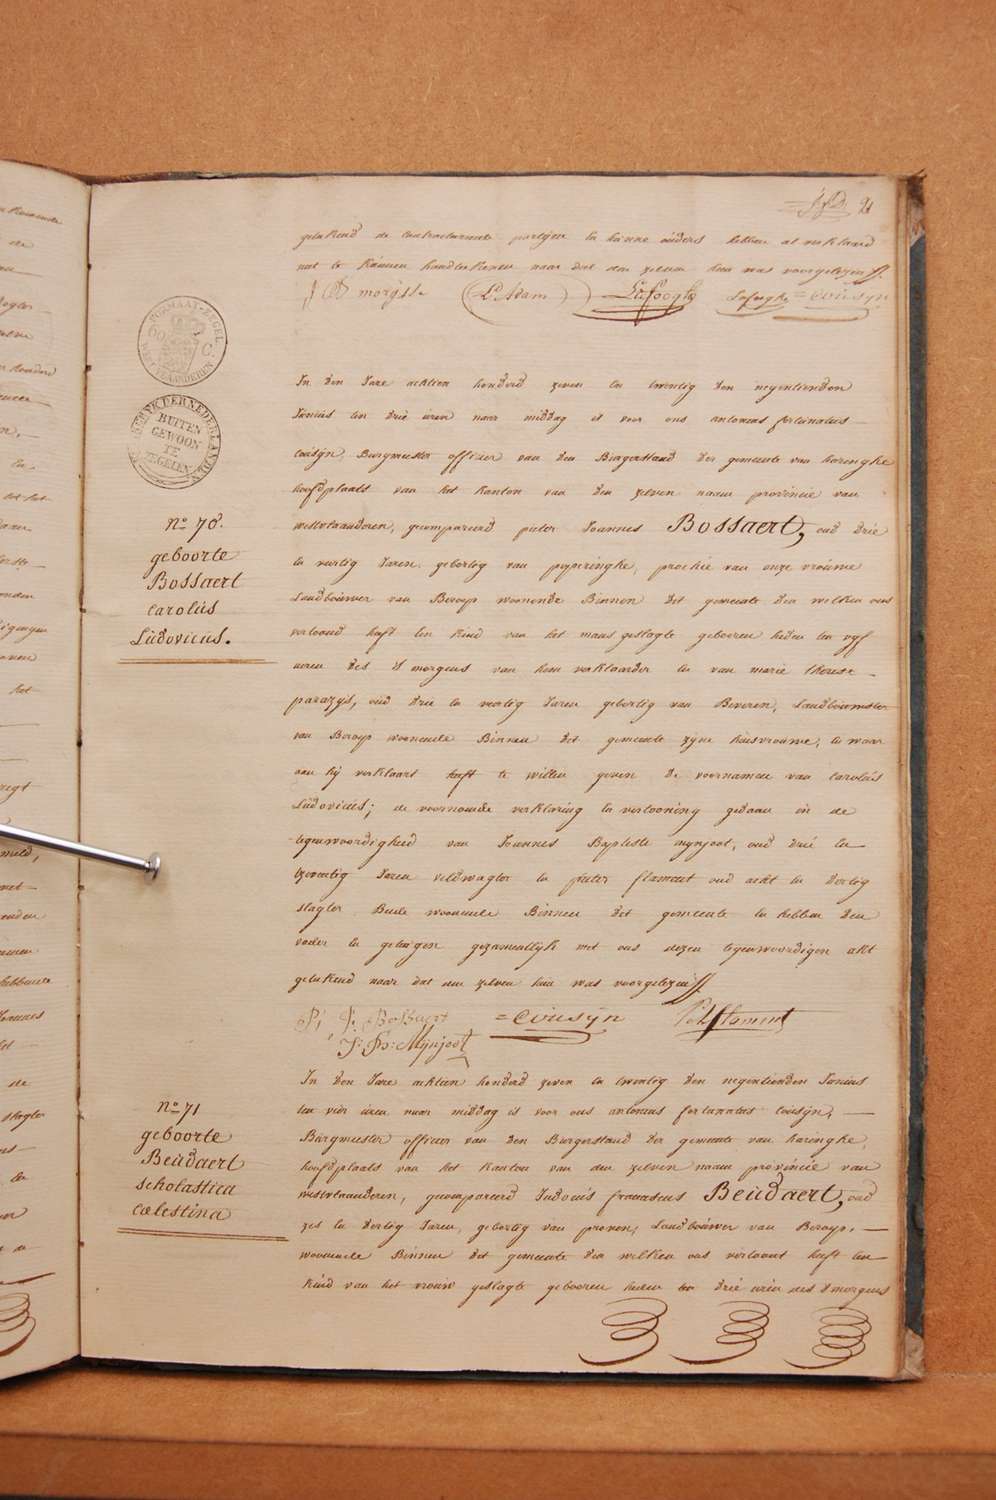 21
getekend de contracterende partyen en hunne ouders hebben al verklaard
niet te kunnen handtekenen naer dat den zelven hun was voorgelezen
morysse L. Adam Lafoogh Lafooghe = Cousyn
FORMAAT-ZEGEL
60 C.
WEST VLAANDEREN
KONINGRYK DER NEDERLANDEN
BUITEN
GEWOON
TE
ZEGELEN
In den Jare achtien honderd zeven en twentig den negentienden
Junius ten drie uren naer middag is voor ons antonius fortunatus
cousÿn, Burgmeester officier van den Burgerstand der gemeente van haringhe
hoofdplaats van het kanton van den zelven naem provincie van
westvlaanderen, gecompareerd pieter Joannes Bossaert, oud drie
en veertig Jaren gebortig van poperinghe, prochie van onze vrouwe
Landbouwer van Beroep woonende Binnen det gemeente den welken ons
vertoond heeft een kind van het mans geslagte gebooren heden ten vyf
uren des 's morgens van hem verklaarder en van marie therese
parazÿs, oud drie en veertig Jaren gebortig van Beveren, Landbouwster
van Beroep woonende Binnen det gemeente zÿne huisvrouwe, en waer
aen hÿ verklaart heeft te willen geven de voornamen van Carolus
Ludovicus; de voornoemde verklaring en vertooning gedaan in de
tegenwoordigheid van Joannes Baptiste mynjoot, oud drie en
tzeventig Jaren veldwagter en pieter flament oud acht en dertig
slagter Beide woonende Binnen det gemeente en hebben den
vader en getuigen gezamentlyk met ons dezen tegenwoordigen akt
getekend naer dat den zelven hun was voorgelezen
No 70.
geboorte
Bossaert
Carolus
Ludovicus.
P. J. Bossaert = Cousÿn Pr flament
J: B: Mÿnjoot
In den Jare achtien honderd zeven en twentig den negentienden Junius
ten vier uren naer middag is voor ons antonius fortunatus cousÿn,
Burgmeester officier van den Burgerstand der gemeente van haringhe
hoofdplaats van het kanton van den zelven naem provincie van
westvlaanderen, gecompareerd Ludovicus franciscus Beudaert, oud
zes en dertig Jaren, gebortig van proven, Landbouwer van Beroep,
woonende Binnen det gemeente den welken ons vertoont heeft een
kind van het vrouw geslagte gebooren heden ten drie uren des 's morgens
No 71
geboorte
Beudaert
Scholastica
Cœlestina